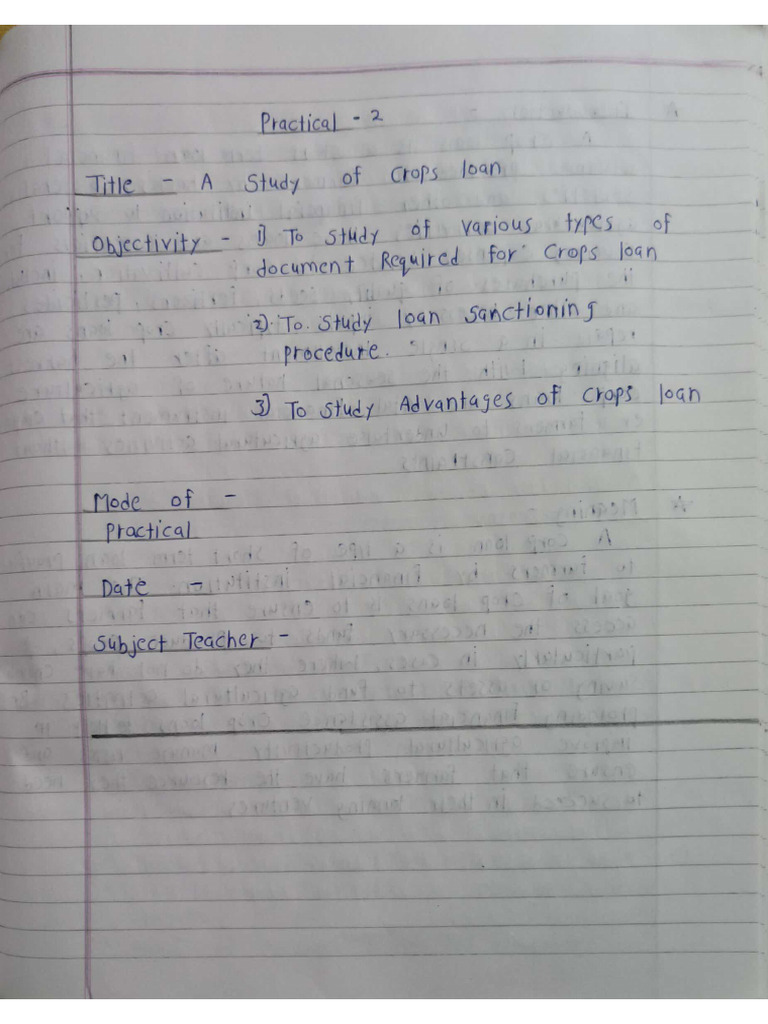 Practical - 2
Title - A Study of Crops loan
Objectivity - 1) To study of various types of
document Required for Crops loan
2) To study loan Sanctioning
procedure.
3) To study Advantages of Crops loan
Mode of -
Practical
Date -
Subject Teacher -